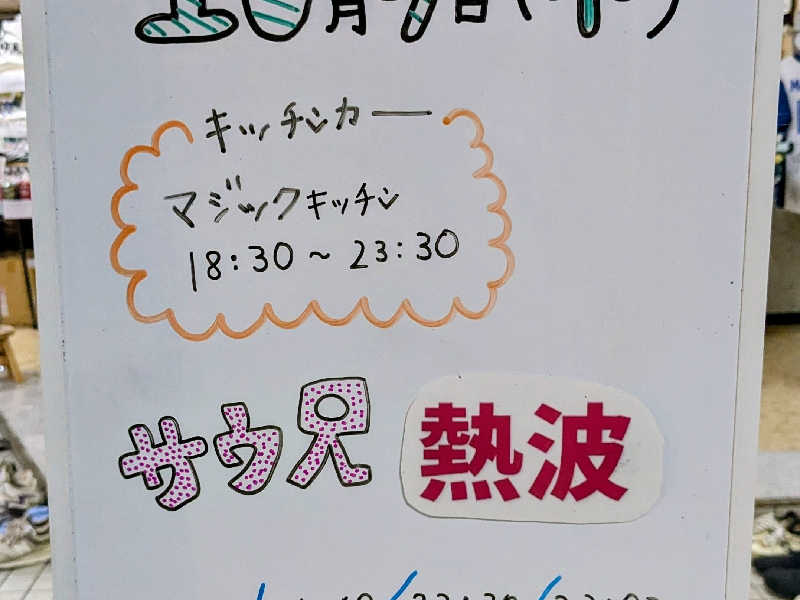 キッチンカー
マジックキッチン
18:30~23:30
サウ兄 熱波